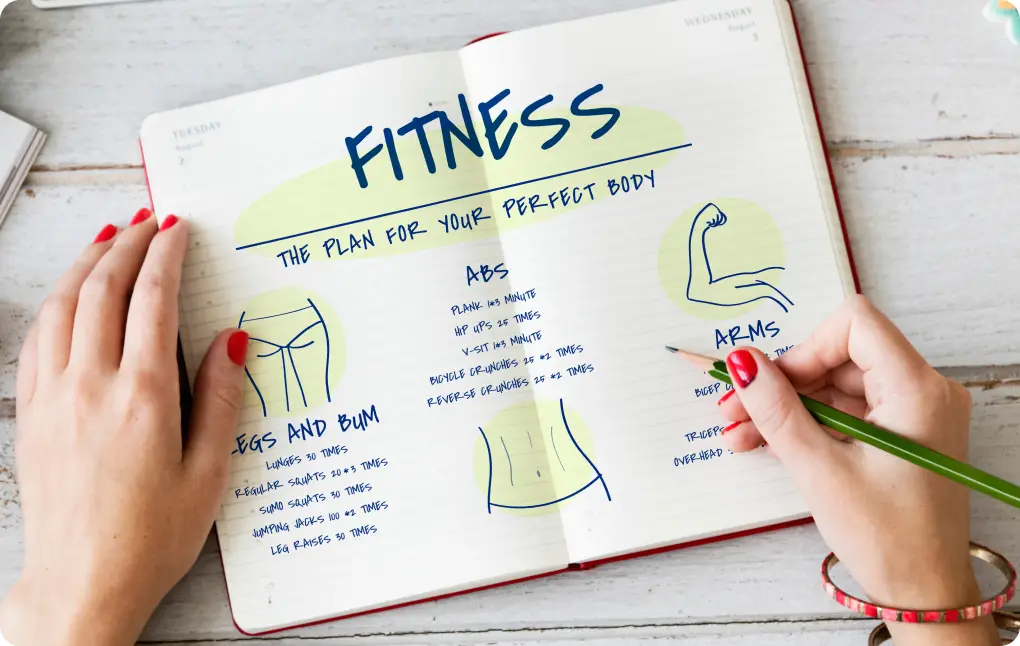 TUESDAY
August
2
WEDNESDAY
August
3
FITNESS
THE PLAN FOR YOUR PERFECT BODY
ABS
PLANK 1*3 MINUTE
HIP UPS 25 TIMES
V-SIT 1*3 MINUTE
BICYCLE CRUNCHES 25 *2 TIMES
REVERSE CRUNCHES 25 *2 TIMES
LEGS AND BUM
LUNGES 30 TIMES
REGULAR SQUATS 20 *3 TIMES
SUMO SQUATS 30 TIMES
JUMPING JACKS 100 *2 TIMES
LEG RAISES 30 TIMES
ARMS
BICEP
TRICEPS
OVERHEAD